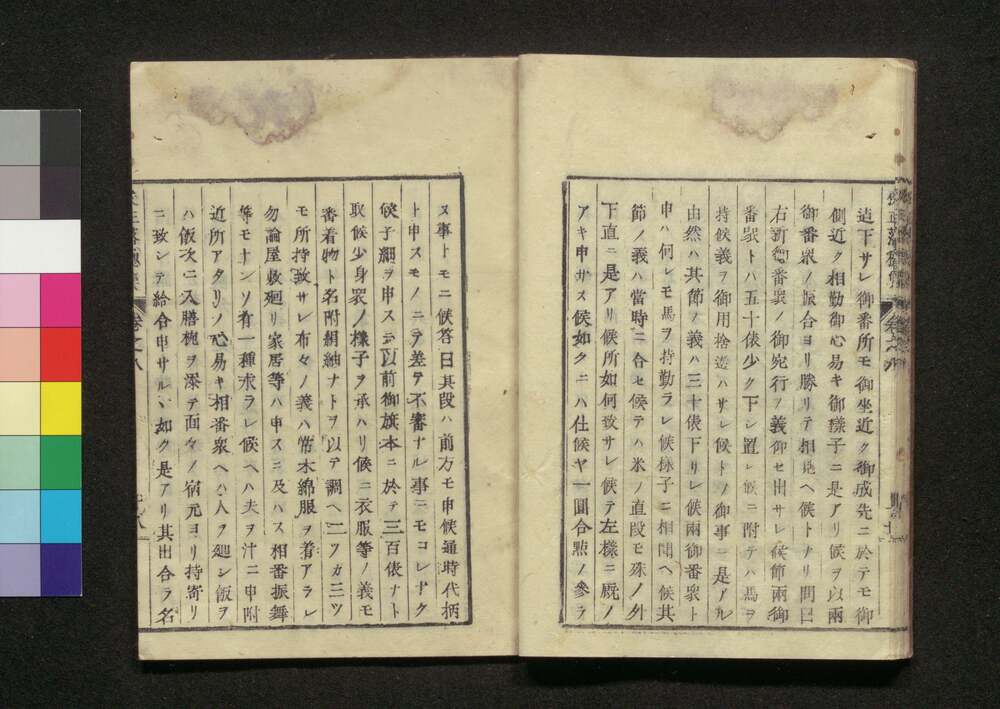 造下サレ御番所モ御坐近ク御成先ニ於テモ御
側近ク相勤御心易キ御樣子ニ是アリ候ヲ以兩
御番衆ノ振合ヨリ勝リテ相見ヘ候トナリ問曰
右新御番衆ノ御宛行ノ義仰セ出サレ候節兩御
番衆トハ五十俵少ク下シ置レ候ニ附テハ馬ヲ
持候義ヲ御用捨遊ハサレ候トノ御事ニ是アル
由然ハ其節ノ義ハ三十俵下リレ候兩御番衆ト
申ハ何レモ馬ヲ持勤ラレ候樣子ニ相聞ヘ候其
節ノ義ハ當時ニ合セ候テハ米ノ直段モ殊ノ外
下直ニ是アリ候所如何致サレ候テ左樣ニ厩ノ
アキ申サス候如クニハ仕候ヤ一圓合點ノ參ラ
ス事トモニ候答曰其段ハ前方モ申候通時代柄
ト申スモノニテ差テ不審ナル事ニモコレナク
候子細ヲ申スニ以前御旗本ニ於テ三百俵ナト
取候少身衆ノ樣子ヲ承ハリ候ニ衣服等ノ義モ
番着物ト名附絹紬ナトヲ以テ調ヘ二ツカ三ツ
モ所持致サレ布々ノ義ハ常木綿服ヲ着アラレ
勿論屋敷廻リ家居等ハ申スニ及ハス相番振舞
等モナンソ有一種求ラレ候ヘハ夫ヲ汁ニ申附
近所アタリノ心易キ相番衆ヘハ人ヲ廻シ飯ヲ
ハ飯次ニ入膳椀ヲ添テ面々ノ宿元ヨリ持寄リ
ニ致シテ給合申サルヽ如ク是アリ其出合ラ名
卷之八